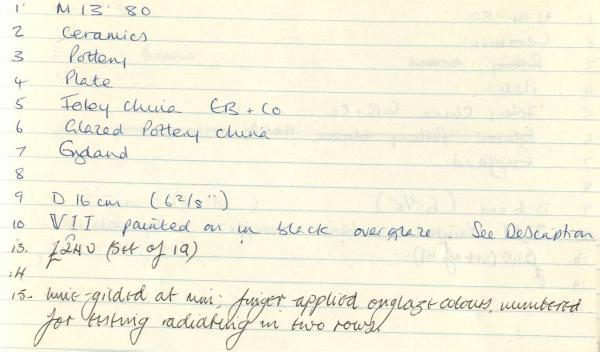 1 M 13 '80
2 Ceramics
3 Pottery
4 Plate
5 Foley China EB + Co
6 Glazed Pottery China
7 England
8
9 D 16 cm (6 2/8")
10 VII painted on in black overglaze. See Description
13. £240 (set of 19)
14
15. line-gilded at rim; finger-applied onglaze colours, numbered
for testing radiating in two rows.